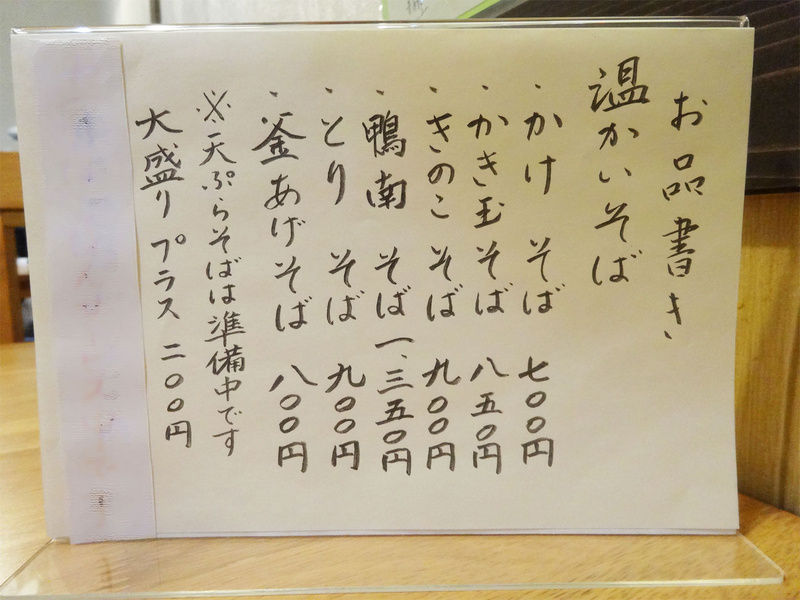 お品書き
温かいそば
・かけ そば 七〇〇円
・かき玉そば 八五〇円
・きのこ そば 九〇〇円
・鴨南 そば 一、三五〇円
・とり そば 九〇〇円
・釜あげそば 八〇〇円
※天ぷらそばは準備中です
大盛り プラス 二〇〇円